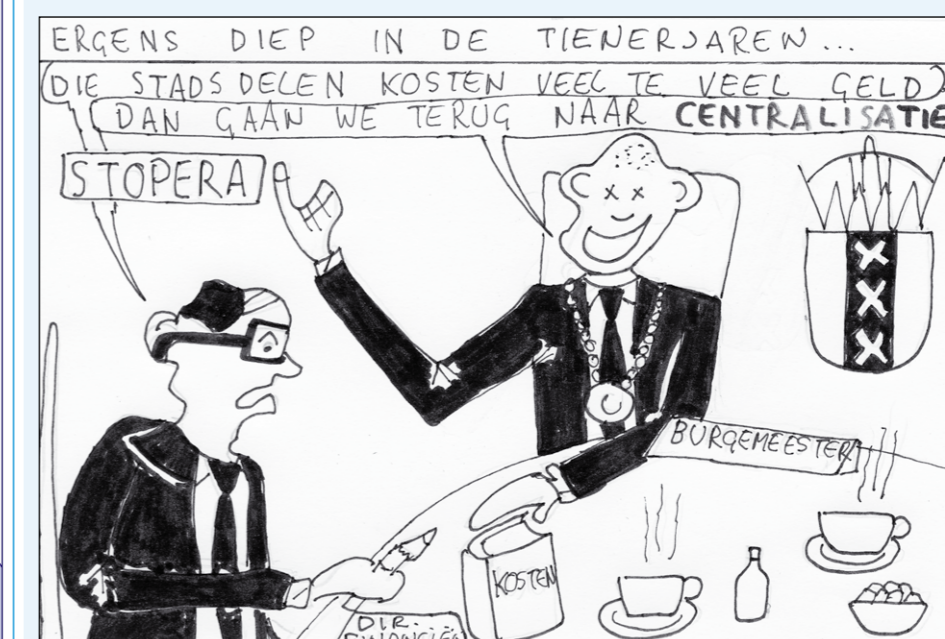 ERGENS DIEP IN DE TIENERJAREN...
DIE STADSDELEN KOSTEN VEEL TE VEEL GELD
DAN GAAN WE TERUG NAAR CENTRALISATIE
STOPERA
BURGEMEESTER
KOSTEN
DIR.
FINANCIËN